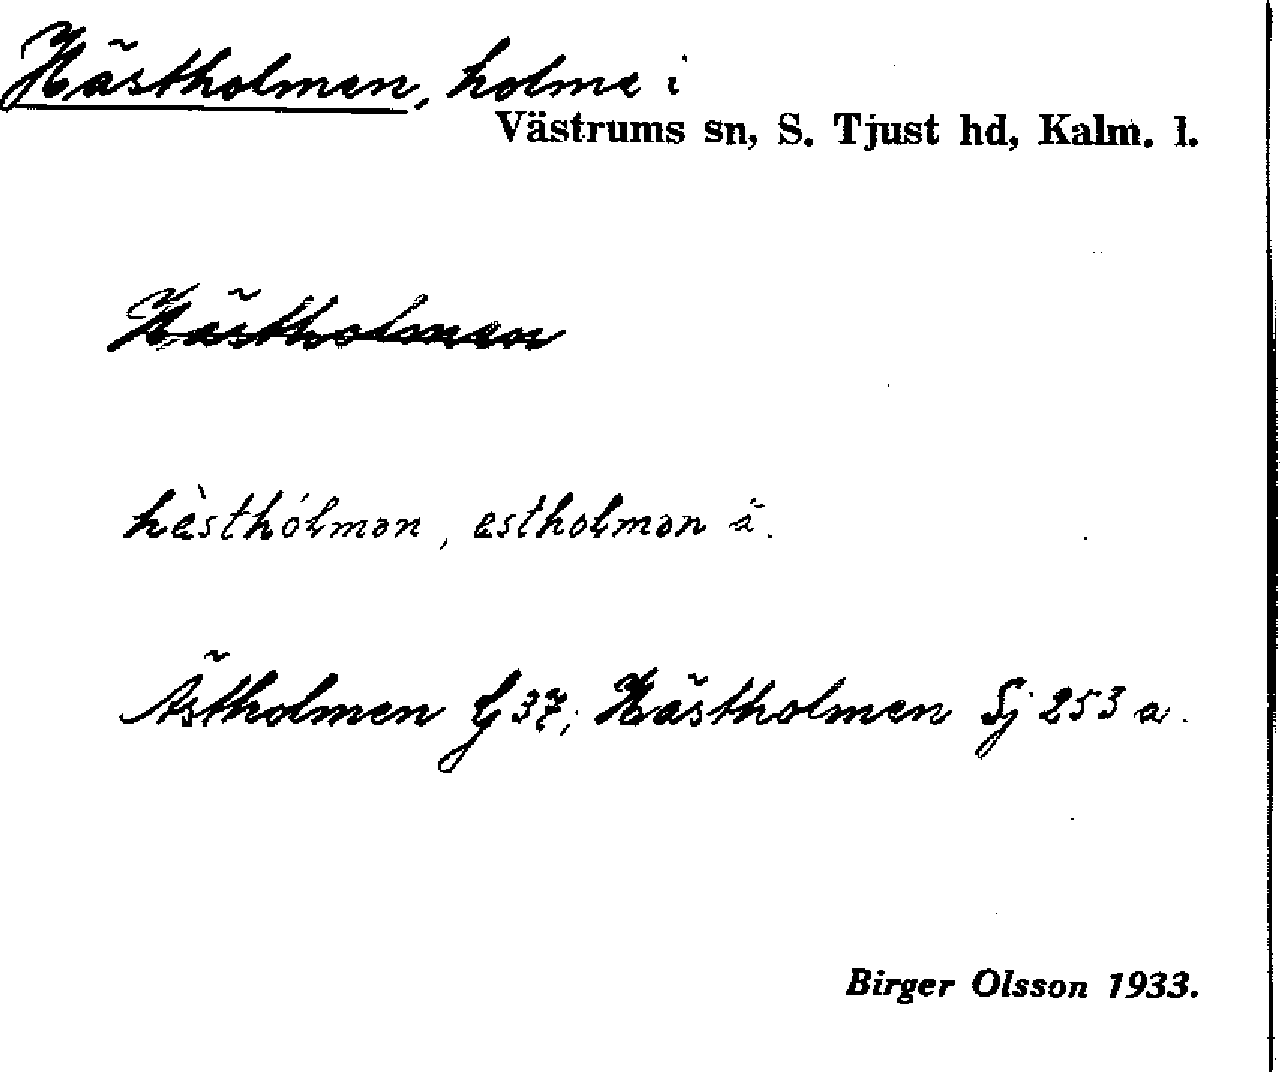 Hästholmen, holme i
Västrums sn, S. Tjust hd, Kalm. l.
Hästholmen
hèsthólmən, estholmən ä.
Ästholmen G 37; Hästholmen Sj 253 a.
Birger Olsson 1933.